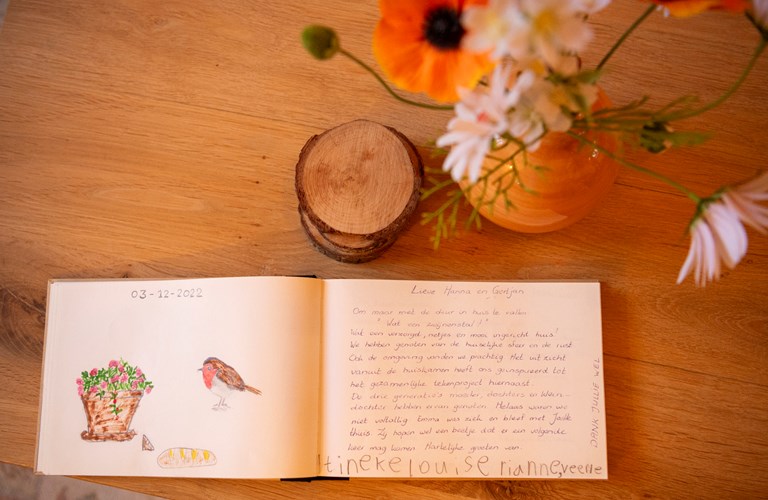 03-12-2022
Lieve Hanna en Gertjan
Om maar met de deur in huis te vallen:
" Wat een zwijnenstal!"
Wat een verzorgd, netjes en mooi ingericht huis!
We hebben genoten van de huiselijke sfeer en de rust
Ook de omgeving vinden we prachtig. Het uitzicht
vanuit de huiskamer heeft ons geïnspireerd tot
het gezamenlijke tekenproject hiernaast.
De drie generaties moeder, dochters en klein-
dochter hebben ervan genoten. Helaas waren we
niet voltallig. Emma was ziek en bleef met Jack
thuis. Zij hopen wel een beetje dat er een volgende
keer mag komen. Hartelijke groeten van.
tineke louise rianne, veerle
DANK JULLIE WEL